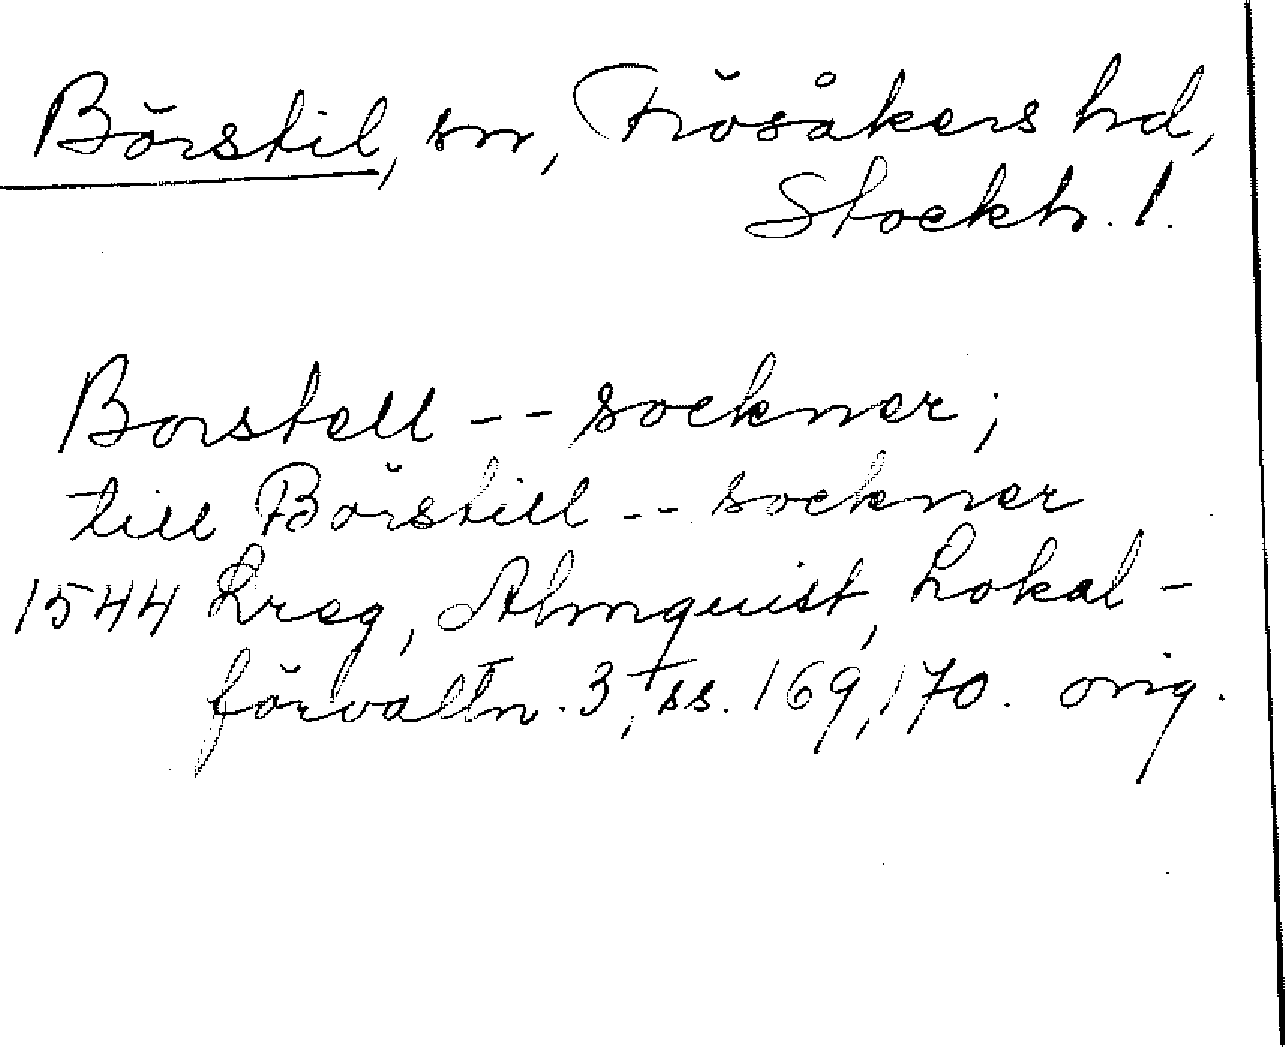 Börstil, sn, Frösåkers hd,
Stockh. l.
Borstell -- sockner;
till Börstill -- sockner
1544 Lreg, Almquist, Lokal-
förvaltn. 3, ss. 169, 170. orig.